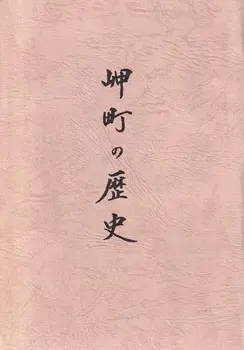 岬町の歴史